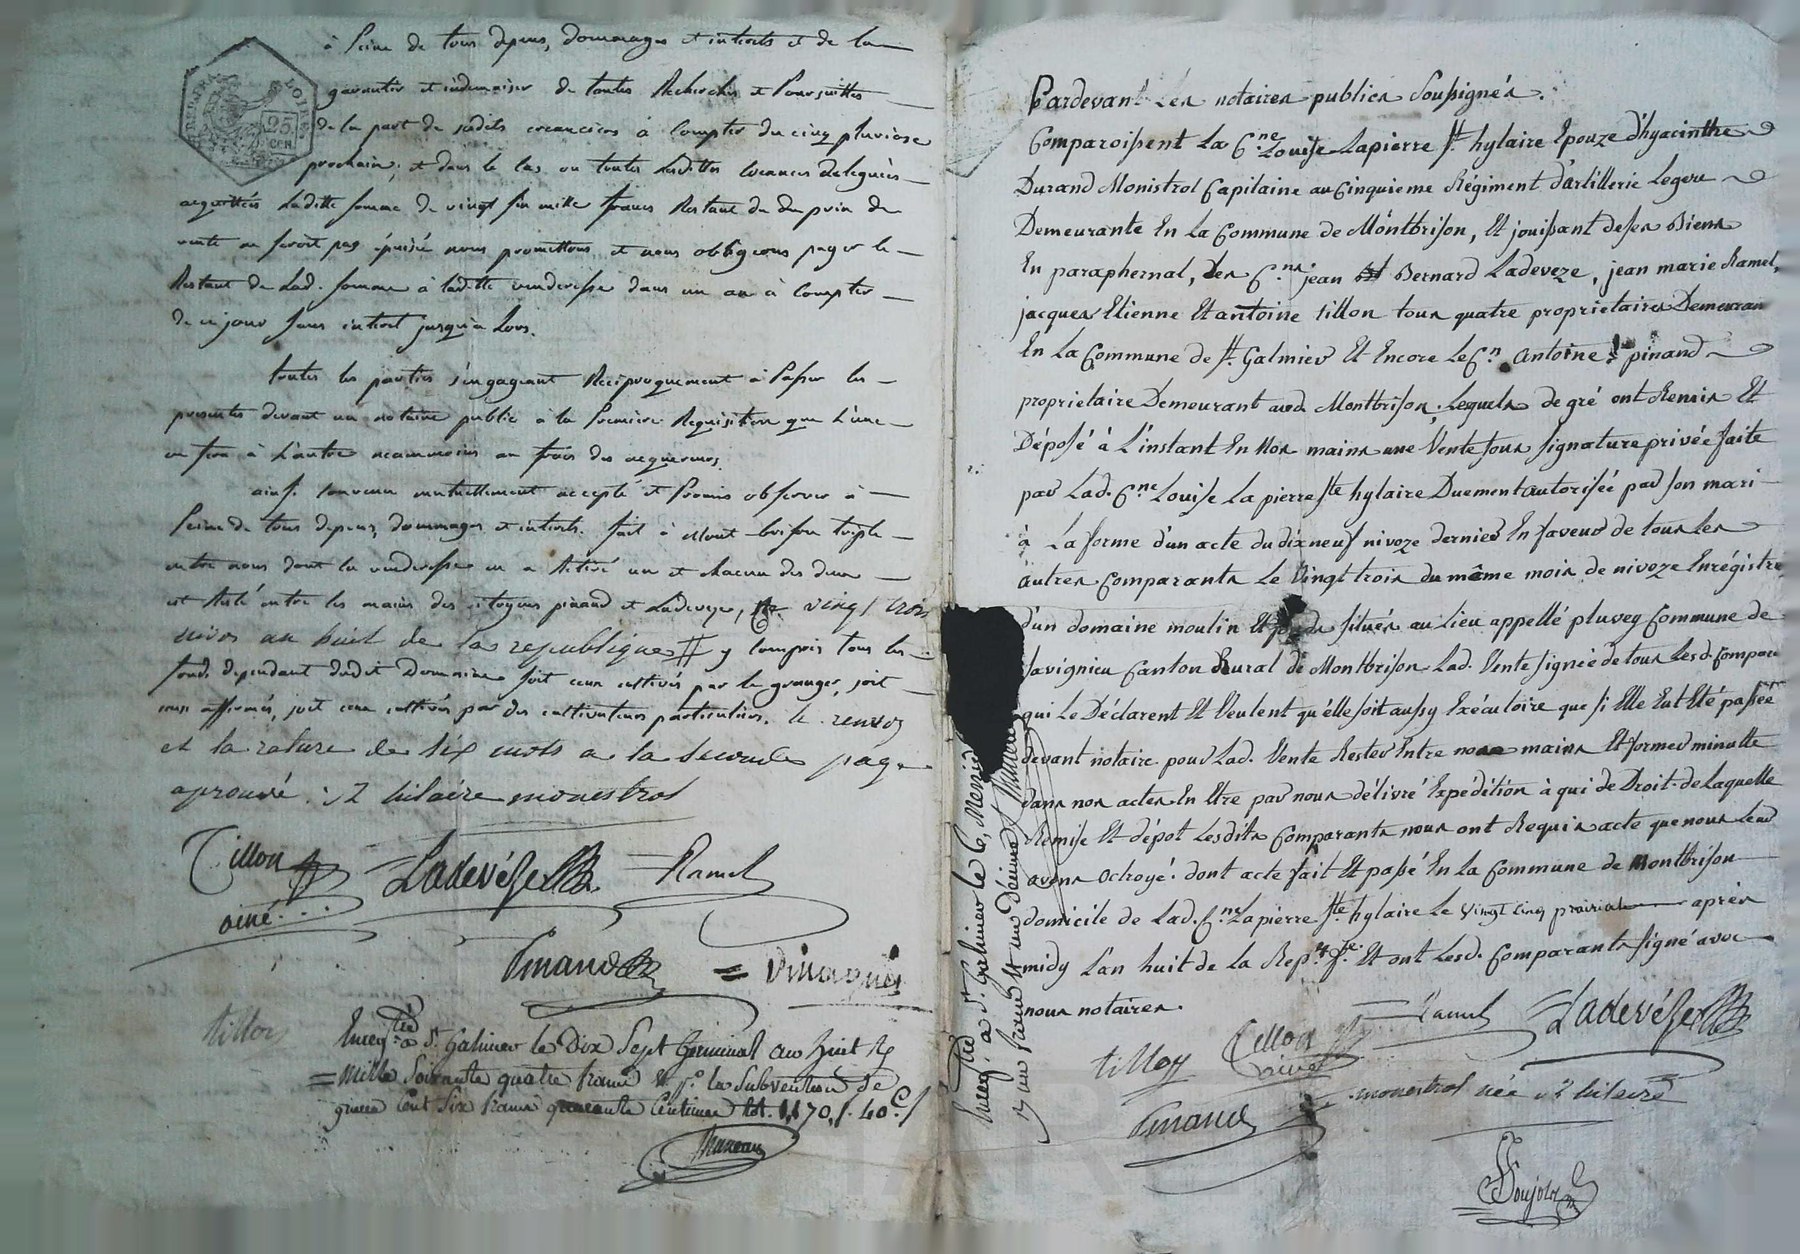 à peine de tous depens, dommages et interets et de la
garentir et indemniser de toutes Recherches et Poursuittes
de la part de sesdits creanciers à Compter du cinq pluviose
prochain; et dans le Cas ou toutes lesdittes Creances deleguées
acquittées Laditte somme de vingt six mille francs Restant du du prix de
vente ne seroit pas épuisée nous promettons et nous obligeons payer le
Restant de Lad. somme à laditte venderesse dans un an à Compter
de ce jour sans interet jusqu'a Lors.
toutes les parties s'engageant Reciproquement à Passer les
presentes devant un notaire public à la Premiere Requisition que L'une
en fera à L'autre neanmoins au frais des acquereurs.
ainsi convenu mutuellement accepté et Promis observer à
Peine de tous depens, dommages et interets. fait à Mont-brison triple
entre nous dont la venderesse en a Retiré un et chacun des deux
est Resté entre les mains des citoyens pinand et Ladeveze, vingt trois
nivos an huit de la republique // y Compris tous les
fonds dependant dudit Domaine soit ceux cultivés par le granger, soit
ceux affermés, soit ceux cultivés par des cultivateurs particuliers. le renvoy
et la rature de six mots a la seconde page
aprouvé. st hilaire monestrol
Tillon
ainé
Ladevéze
Ramel
Pinand
tillon
Enregtré a St. Galmier le Dix Sept Germinal an huit
mille Soixante quatre francs et pr. la Subvention de
guerre Cent Six francs quarante Centimes tot. 1,170,f. 40c.
25
CEN
LOIRE
Pardevant Les notaires publics Soussignés.
Comparoissent La Cne. Louise Lapierre St. hylaire Epouze d'hyacinthe
Durand Monistrol Capitaine au Cinquieme Régiment d'artillerie Legere
Demeurante En La Commune de Montbrison, Et jouissant de ses Biens
En paraphernal, Les Cns. jean Bernard Ladeveze, jean marie Ramel,
jacques Etienne Et antoine tillon tous quatre proprietaires Demeuran
En La Commune de St. Galmier Et Encore Le Cn. Antoine pinand
proprietaire Demeurant aud. Montbrison; Lequels de gré ont Remis Et
Déposé à L'instant En Nos mains une Vente sous signature privée faite
par Lad. Cne. Louise La pierre Ste hylaire Duement autorisée par son mari
à La forme d'un acte du dix neuf nivoze dernier En faveur de tous Les
autres Comparants Le Vingt trois du même mois de nivoze Enrégistré
d'un domaine moulin Et situés au Lieu appellé pluvey Commune de
Savignieu Canton Rural de Montbrison Lad. Vente signée de tous Lesd. Compar
qui Le Déclarent Et Veulent qu'élle soit aussy Exécutoire que si Elle Eut Eté passée
devant notaire pour Lad. Vente Rester Entre nos mains Et former minutte
dans nos actes En Etre par nous délivré Expédition à qui de Droit. de Laquelle
Remise Et dépot Lesdits Comparants nous ont Requis acte que nous Leur
avons octroyé. dont acte fait Et passé En La Commune de Montbrison
domicile de Lad. Cne. Lapierre Ste hylaire Le vingt cinq prairial après
midy L'an huit de La Repe. fse. Et ont Lesd. Comparants signé avec
nous notaires.
Ramel
Ladevéze
Tillon
ainé
tillon
Pinand
monestrol née st hilaire
Enregtré a St. Galmier le 6, Messid
un franc et un Décime